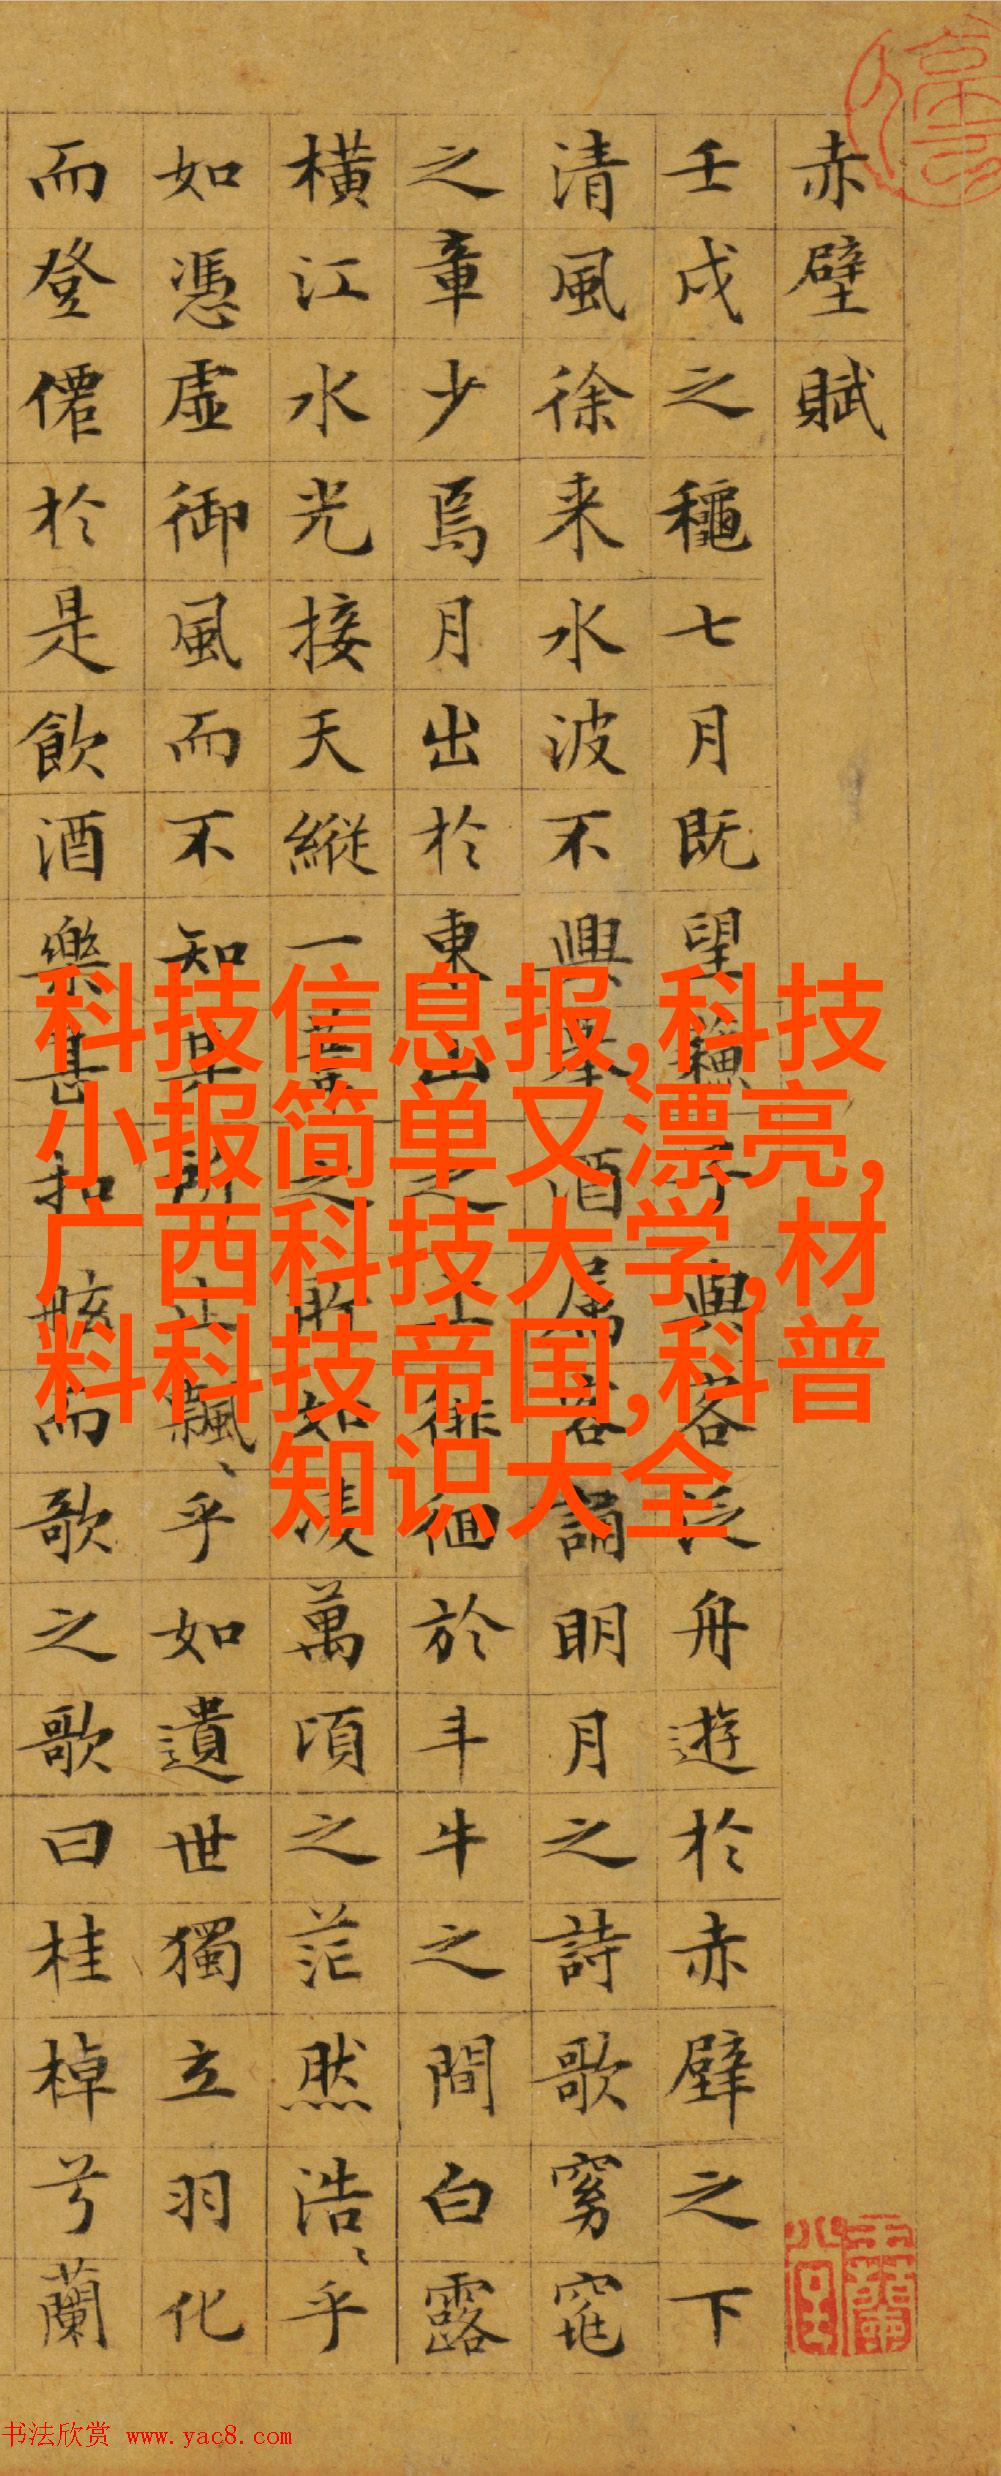 赤壁賦
壬戌之穐七月既望蘓子與客泛舟遊於赤壁之下
清風徐来水波不興舉酒属客誦明月之詩歌窈窕
之章少焉月出於東山之上徘徊於斗牛之間白露
橫江水光接天縱一葦之所如凌萬頃之茫然浩〻乎
如憑虛御風而不知其所止飄〻乎如遺世獨立羽化
而登僊於是飲酒樂甚扣舷而歌之歌曰桂棹兮蘭
科技信息报,科技
小报简单又漂亮,
广西科技大学,材
料科技帝国,科普
知识大全
书法欣赏 www.yac8.com